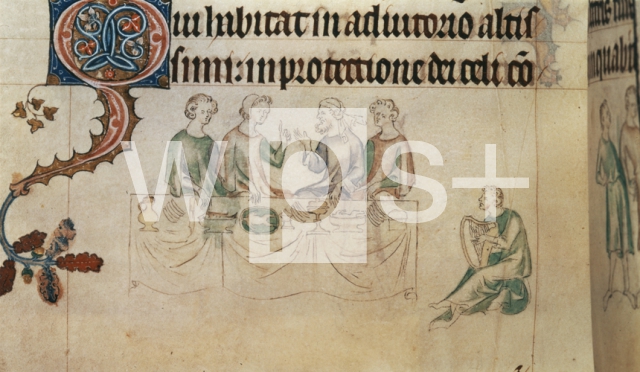 Qui habitat in adiutorio altis
simi: in protectione dei celi cō
wps+